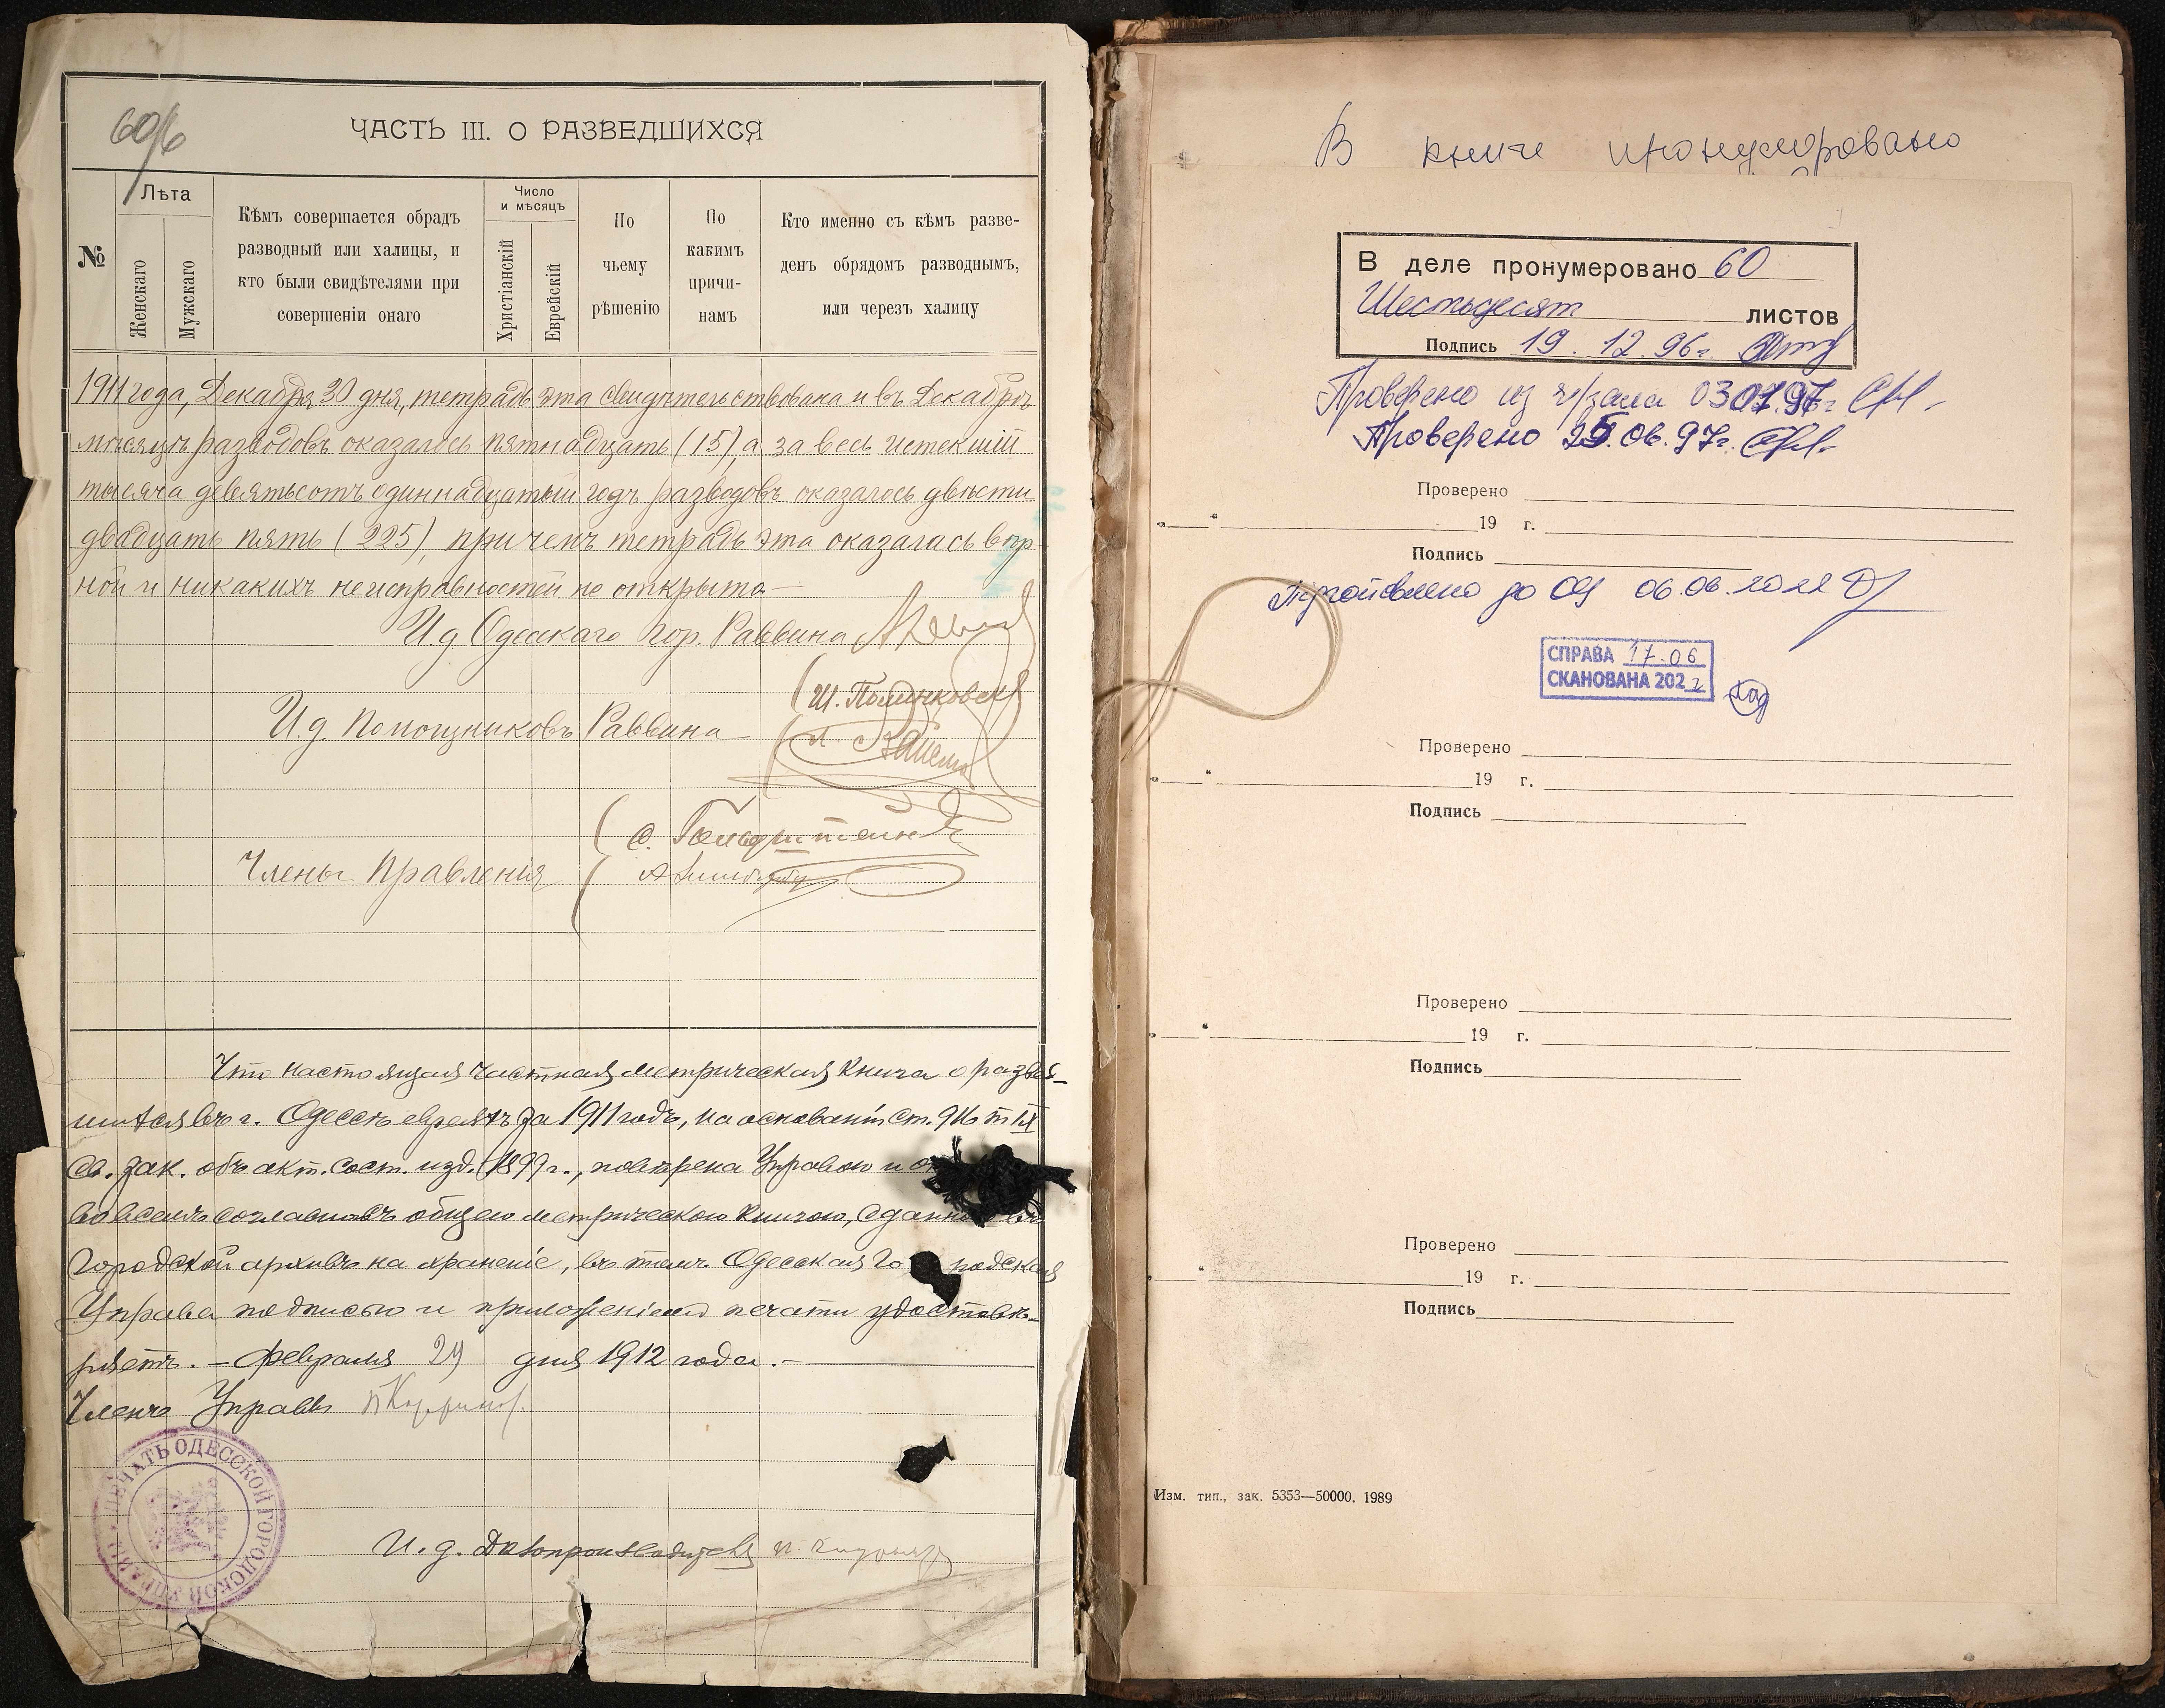 60
ЧАСТЬ III. О РАЗВЕДШИХСЯ
№
Лѣта
Женскаго
Мужскаго
Кѣмъ совершается обрадъ
разводный или халицы, и
кто были свидѣтелями при
совершеніи онаго
Число
и мѣсяцъ
Христіанскій
Еврейскій
По
чьему
рѣшенію
По
какимъ
причи-
намъ
Кто именно съ кѣмъ разве-
денъ обрядомъ разводнымъ,
или черезъ халицу
1911 года, Декабря 30 дня, тетрадь эта свидѣтельствована и въ Декабрѣ
мѣсяцѣ разводовъ оказалось пятнадцать (15), а за весь истекшій
тысяча девятьсотъ одиннадцатый годъ разводовъ оказалось двѣсти
двадцать пять (225), причемъ тетрадь эта оказалась вѣр-
ной и никакихъ неисправностей не открыто —
И.д. Одесскаго Гор. Раввина
И.д. Помощниковъ Раввина —
Члены Правленія
Что настоящая частная метрическая книга о развед-
шихся въ г. Одессѣ евреяхъ за 1911 годъ, на основаніи ст. 916 т IX
Св. Зак. объ акт. сост. изд. 1899 г., повѣрена Управою и
во всемъ согласною съ общею метрическою книгою, сданною въ
Городской архивъ на храненіе, въ томъ Одесская Го родская
Управа подписью и приложеніемъ печати удостовѣ-
ряетъ. — Февраля 29 дня 1912 года. —
Членъ Управы
ПЕЧАТЬ ОДЕССКОЙ ГОРОДСКОЙ УПРАВЫ
И. д. Дѣлопроизводителя
В книге пронумеровано
В деле пронумеровано 60
Шестьдесят листов
Подпись 19.12.96г.
Проверено из ч/зала 03 07.97г
Проверено 25.06.97г.
Проверено
„ “ 19 г.
Подпись
06.06.2022
СПРАВА 17.06
СКАНОВАНА 2022
Проверено
„ “ 19 г.
Подпись
Проверено
„ “ 19 г.
Подпись
Проверено
„ “ 19 г.
Подпись
Изм. тип., зак. 5353—50000. 1989